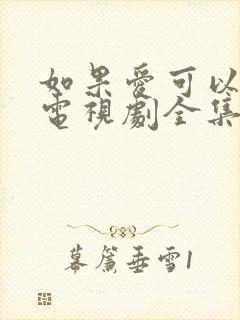 如果愛可以
電視劇全集
幕簾垂雪1